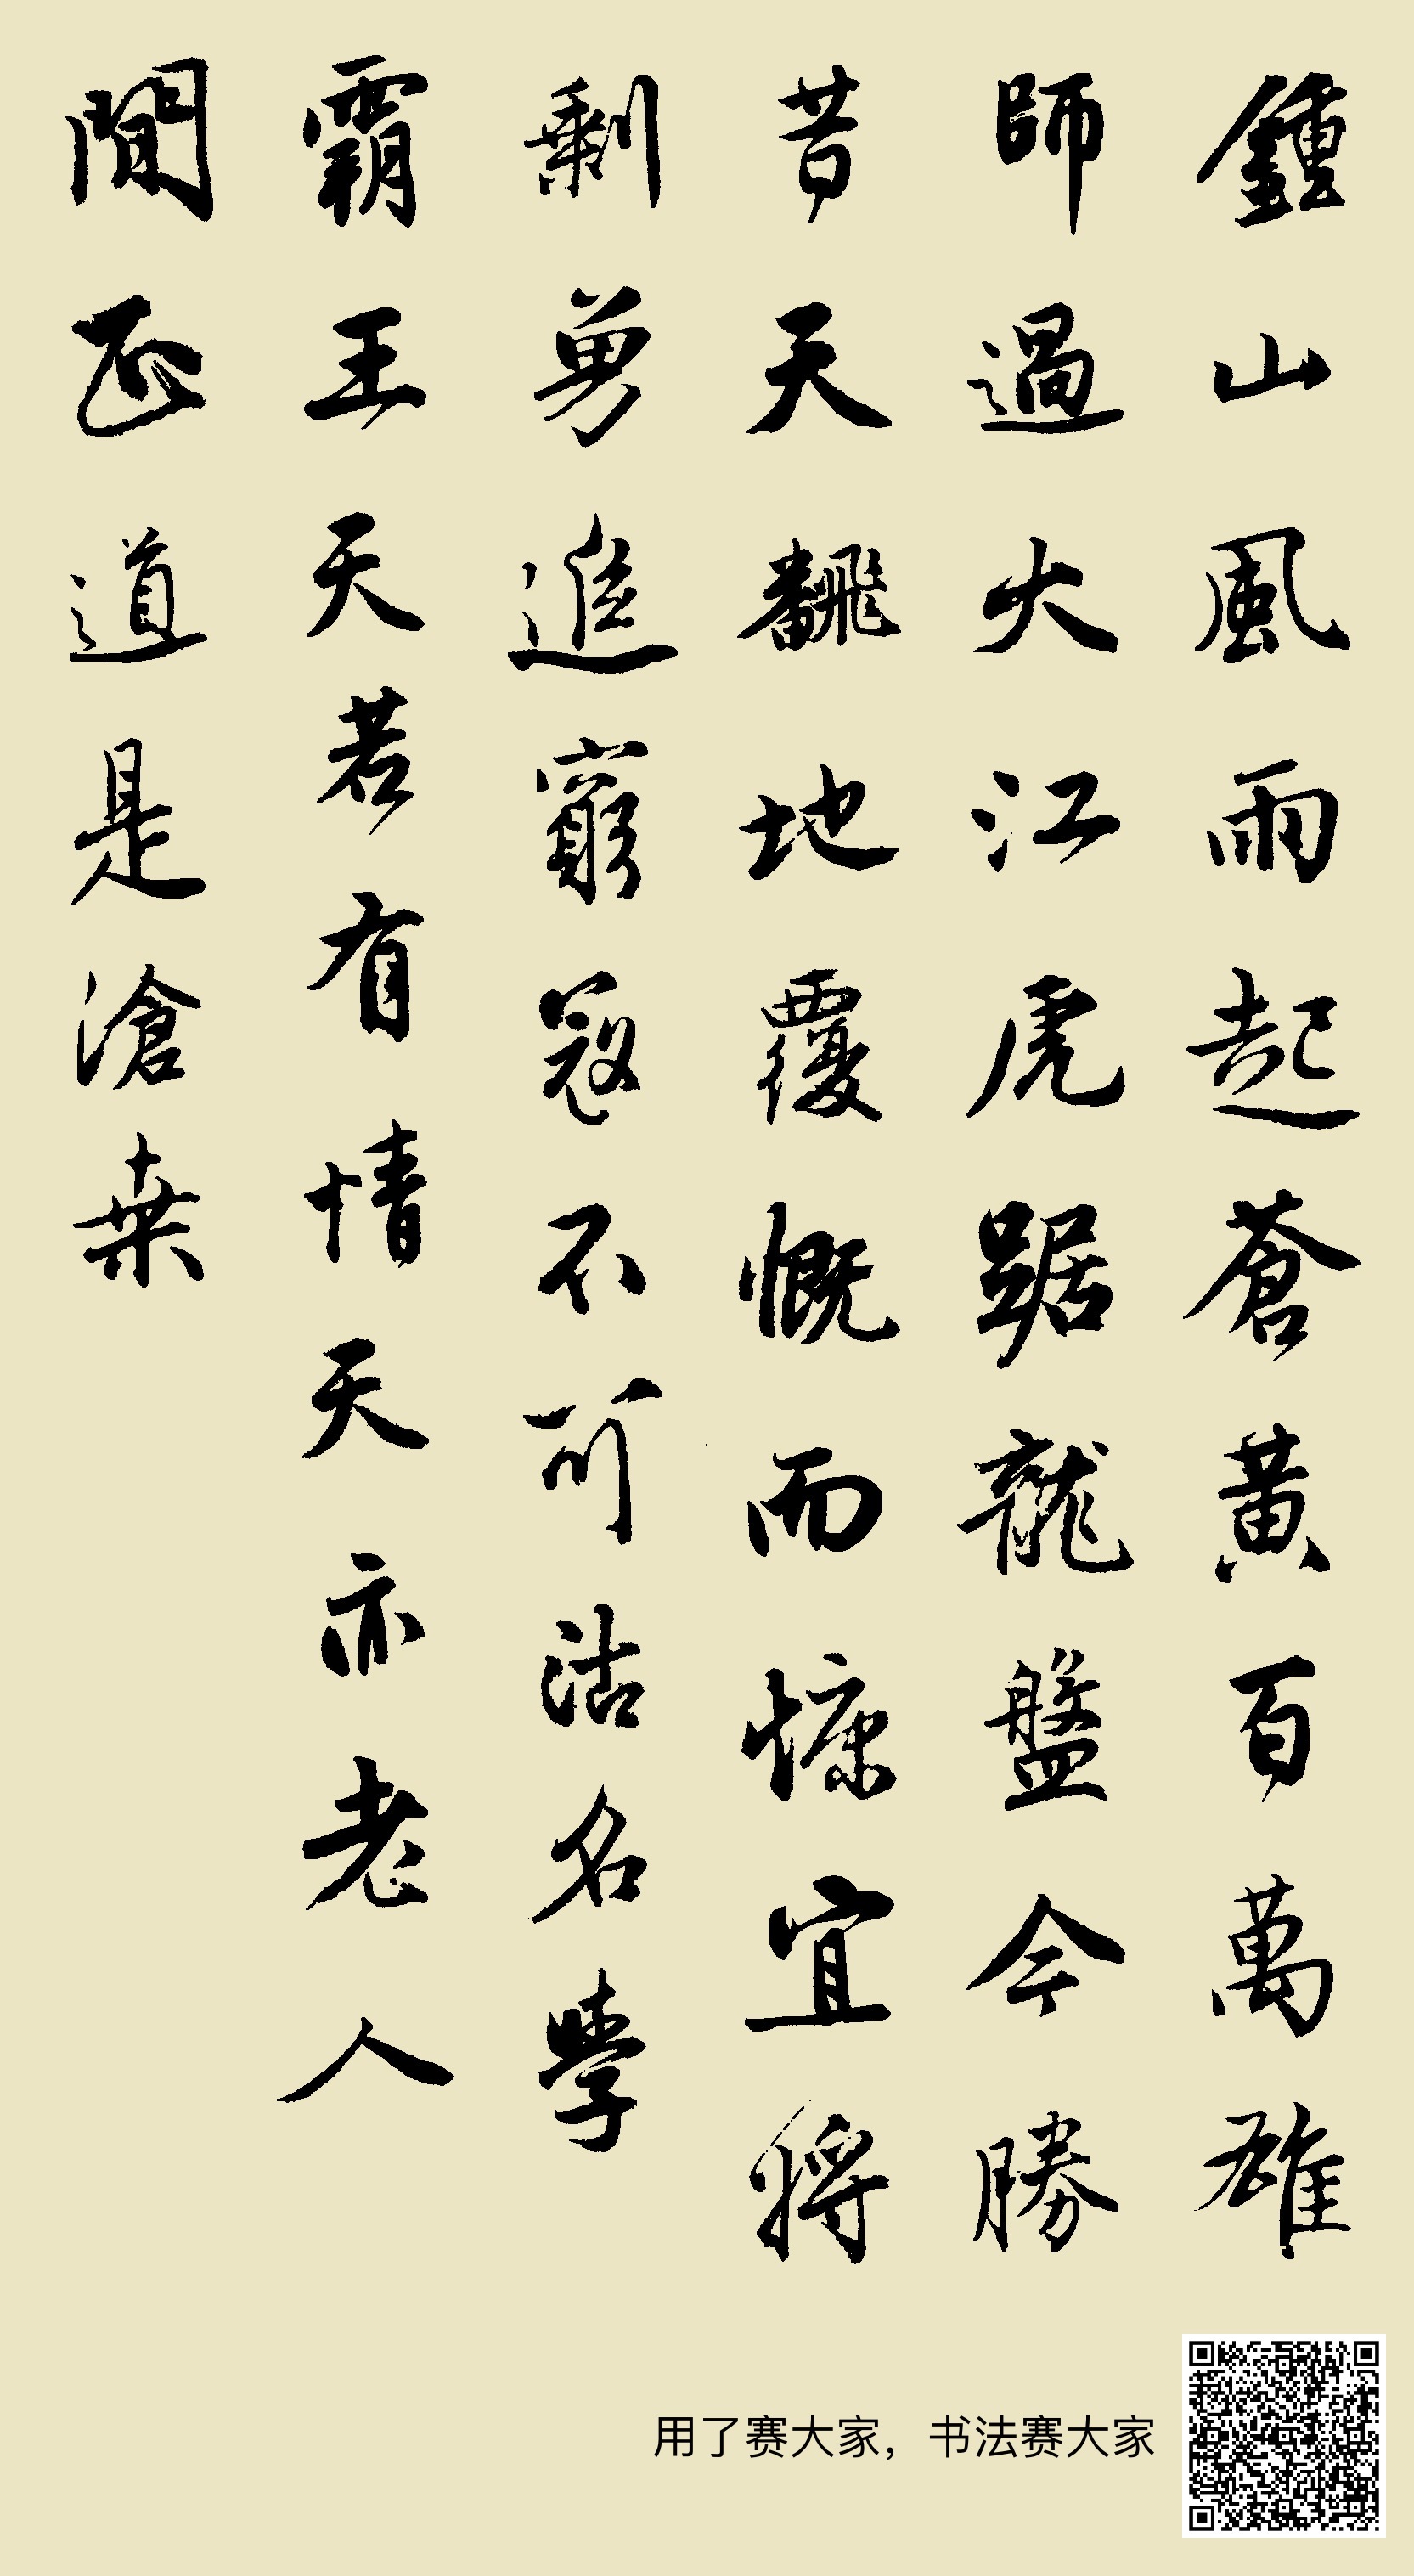 鍾山風雨起蒼黃百萬雄
師過大江虎踞龍盤今勝
昔天飜地覆慨而慷宜將
剩勇追窮寇不可沽名學
霸王天若有情天亦老人
間正道是滄桑
用了赛大家，书法赛大家